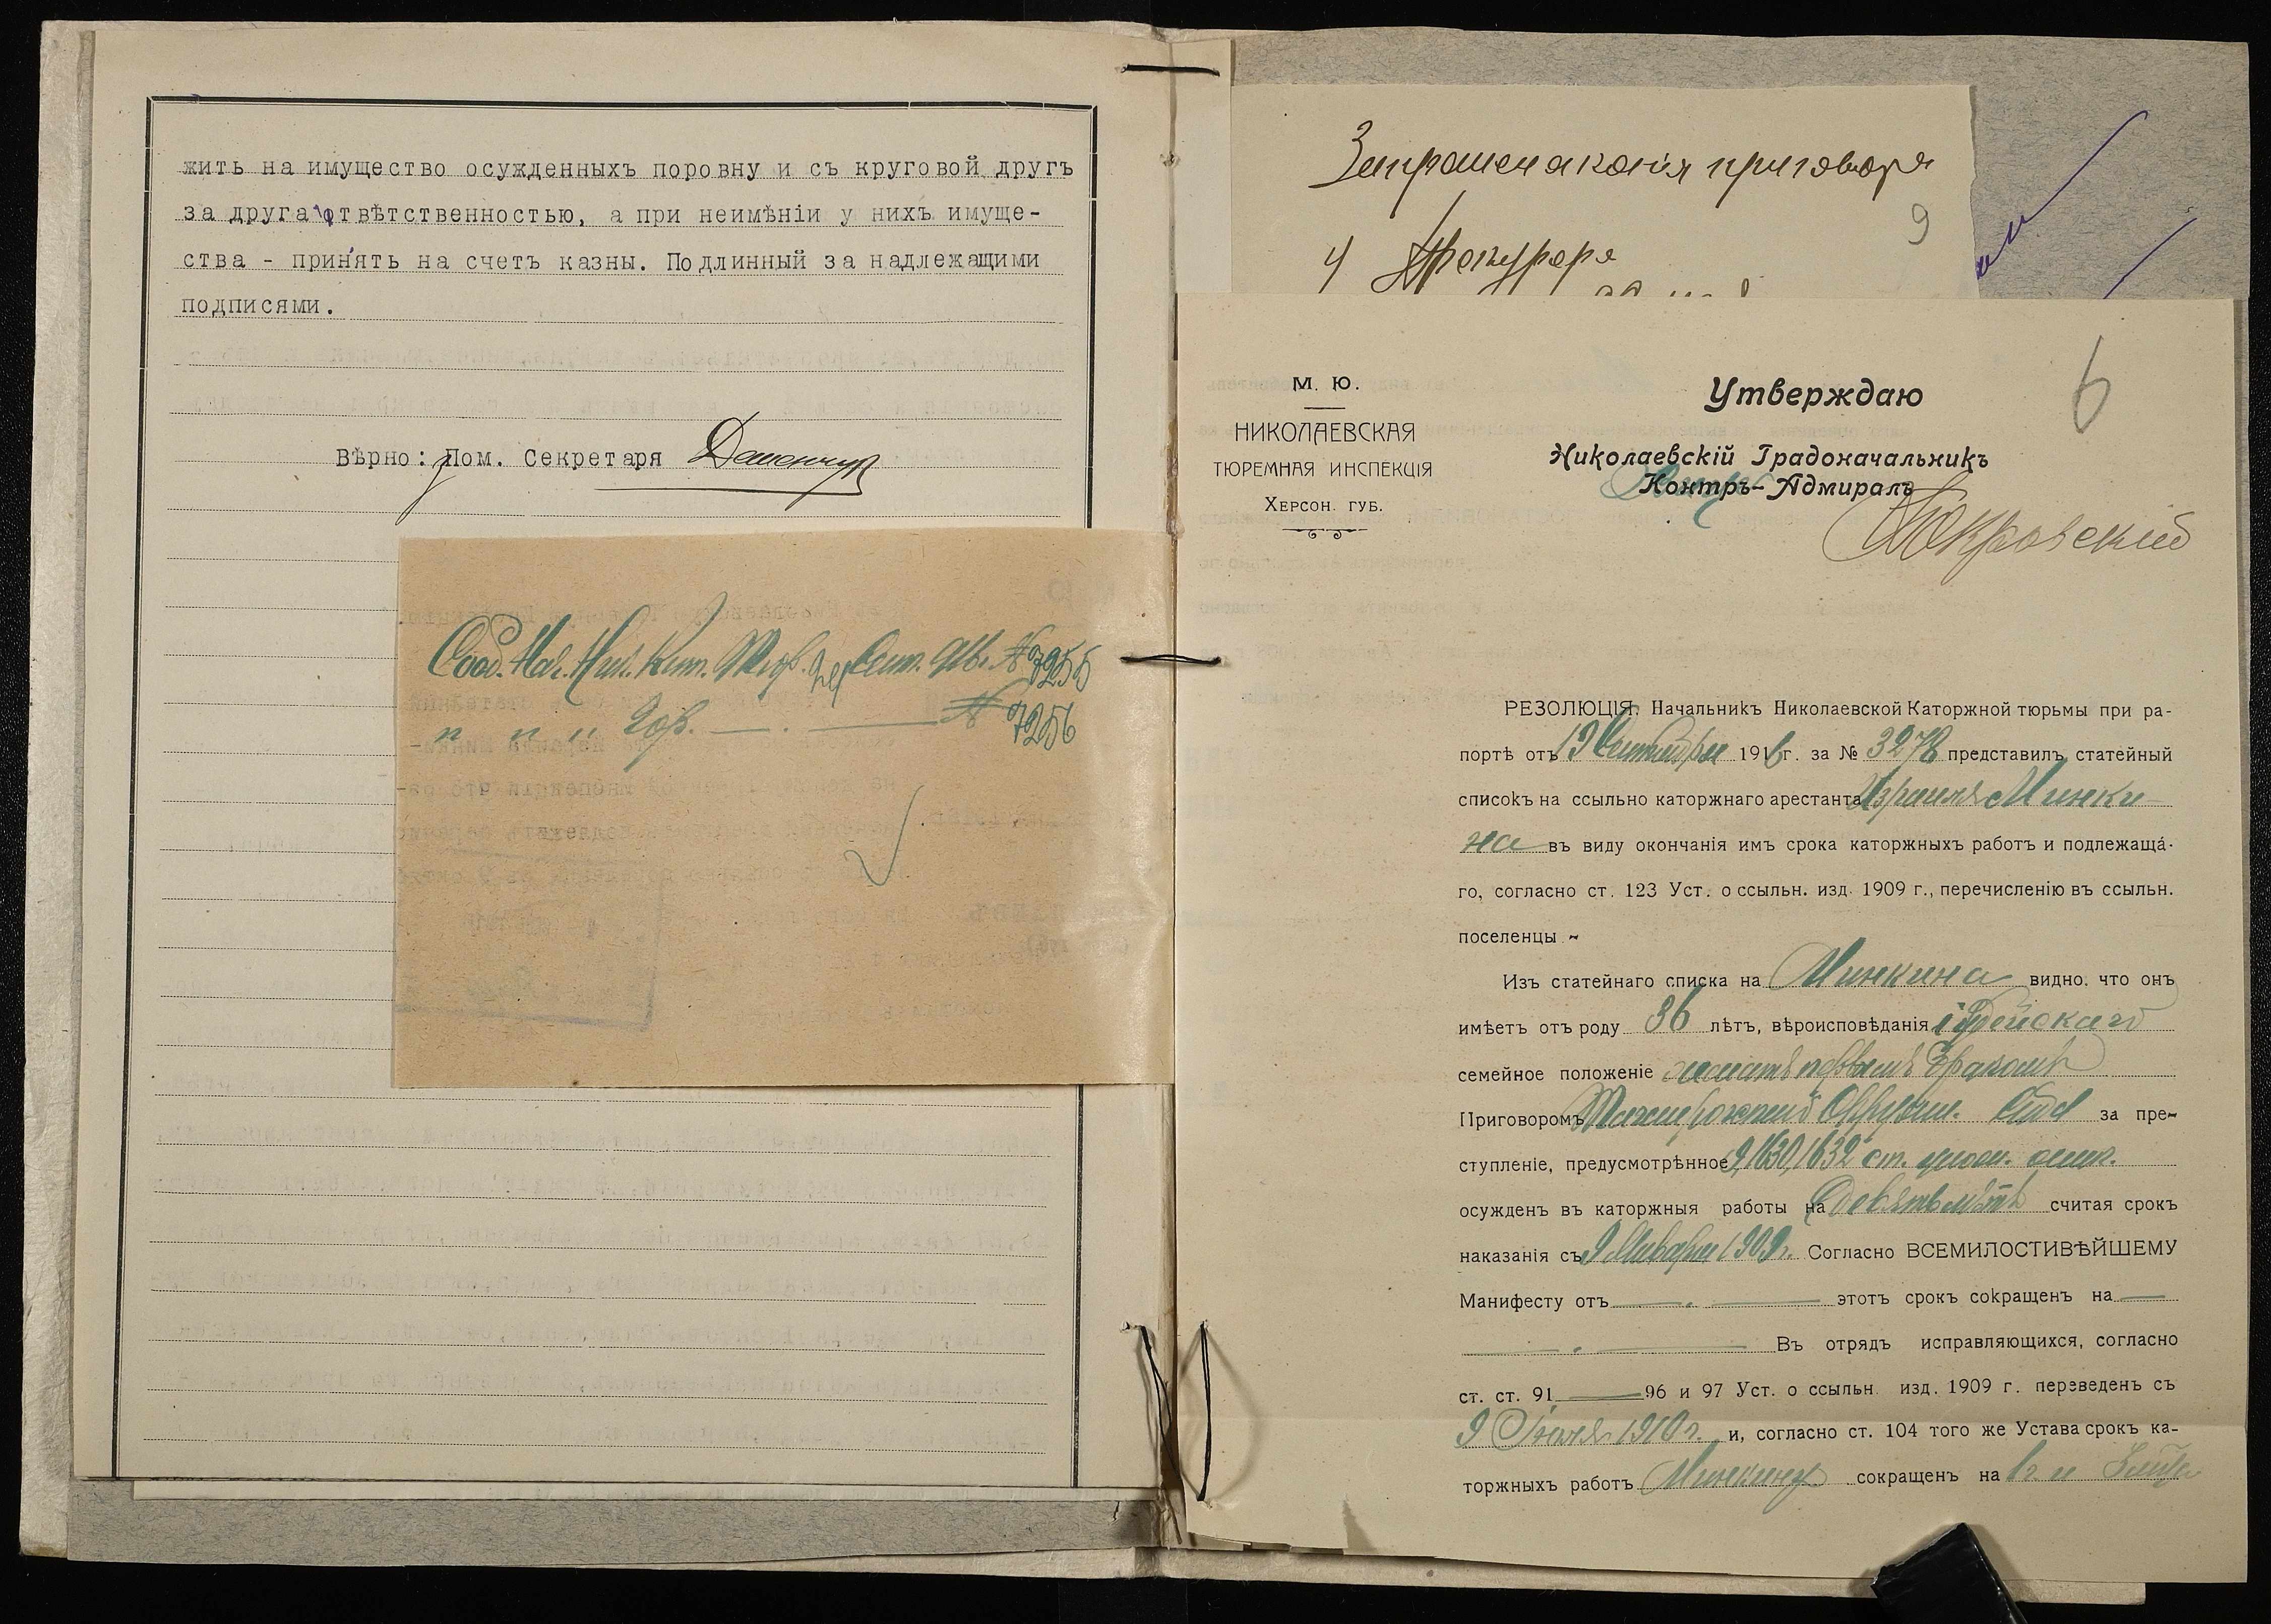 жить на имущество осужденныхъ поровну и съ круговой другъ
за друга отвѣтственностью, а при неимѣніи у нихъ имуще-
ства - принять на счетъ казны. Подлинный за надлежащими
подписями.
Вѣрно: Пом. Секретаря
№ 7255
" " " № 7256
Запрошена копія приговора
у Прокурора
9
6
М. Ю.
НИКОЛАЕВСКАЯ
ТЮРЕМНАЯ ИНСПЕКЦІЯ
ХЕРСОН. ГУБ.
Утверждаю
Николаевскій Градоначальникъ
Контръ-Адмиралъ
Покровскій
РЕЗОЛЮЦІЯ. Начальникъ Николаевской Каторжной тюрьмы при ра-
портѣ отъ 19 Сентября 1916 г. за № 3278 представилъ статейный
списокъ на ссыльно каторжнаго арестанта Израиля Минки-
на въ виду окончанія имъ срока каторжныхъ работъ и подлежаща-
го, согласно ст. 123 Уст. о ссыльн. изд. 1909 г., перечисленію въ ссыльн.
поселенцы ~
Изъ статейнаго списка на Минкина видно, что онъ
имѣетъ отъ роду 36 лѣтъ, вѣроисповѣданія іудейскаго
семейное положеніе женатъ первымъ бракомъ
Приговоромъ Таганрогскаго Окружн. Суда за пре-
ступленіе, предусмотрѣнное 9, 1630, 1632 ст. улож. о нак.
осужденъ въ каторжныя работы на девять лѣтъ считая срокъ
наказанія съ 9 Января 1909 г. Согласно ВСЕМИЛОСТИВѢЙШЕМУ
Манифесту отъ — . — этотъ срокъ сокращенъ на —
— . — Въ отрядъ исправляющихся, согласно
ст. ст. 91, — 96 и 97 Уст. о ссыльн. изд. 1909 г. переведенъ съ
9 1910 г. и, согласно ст. 104 того же Устава срокъ ка-
торжныхъ работъ Минкину сокращенъ на 1 г. и